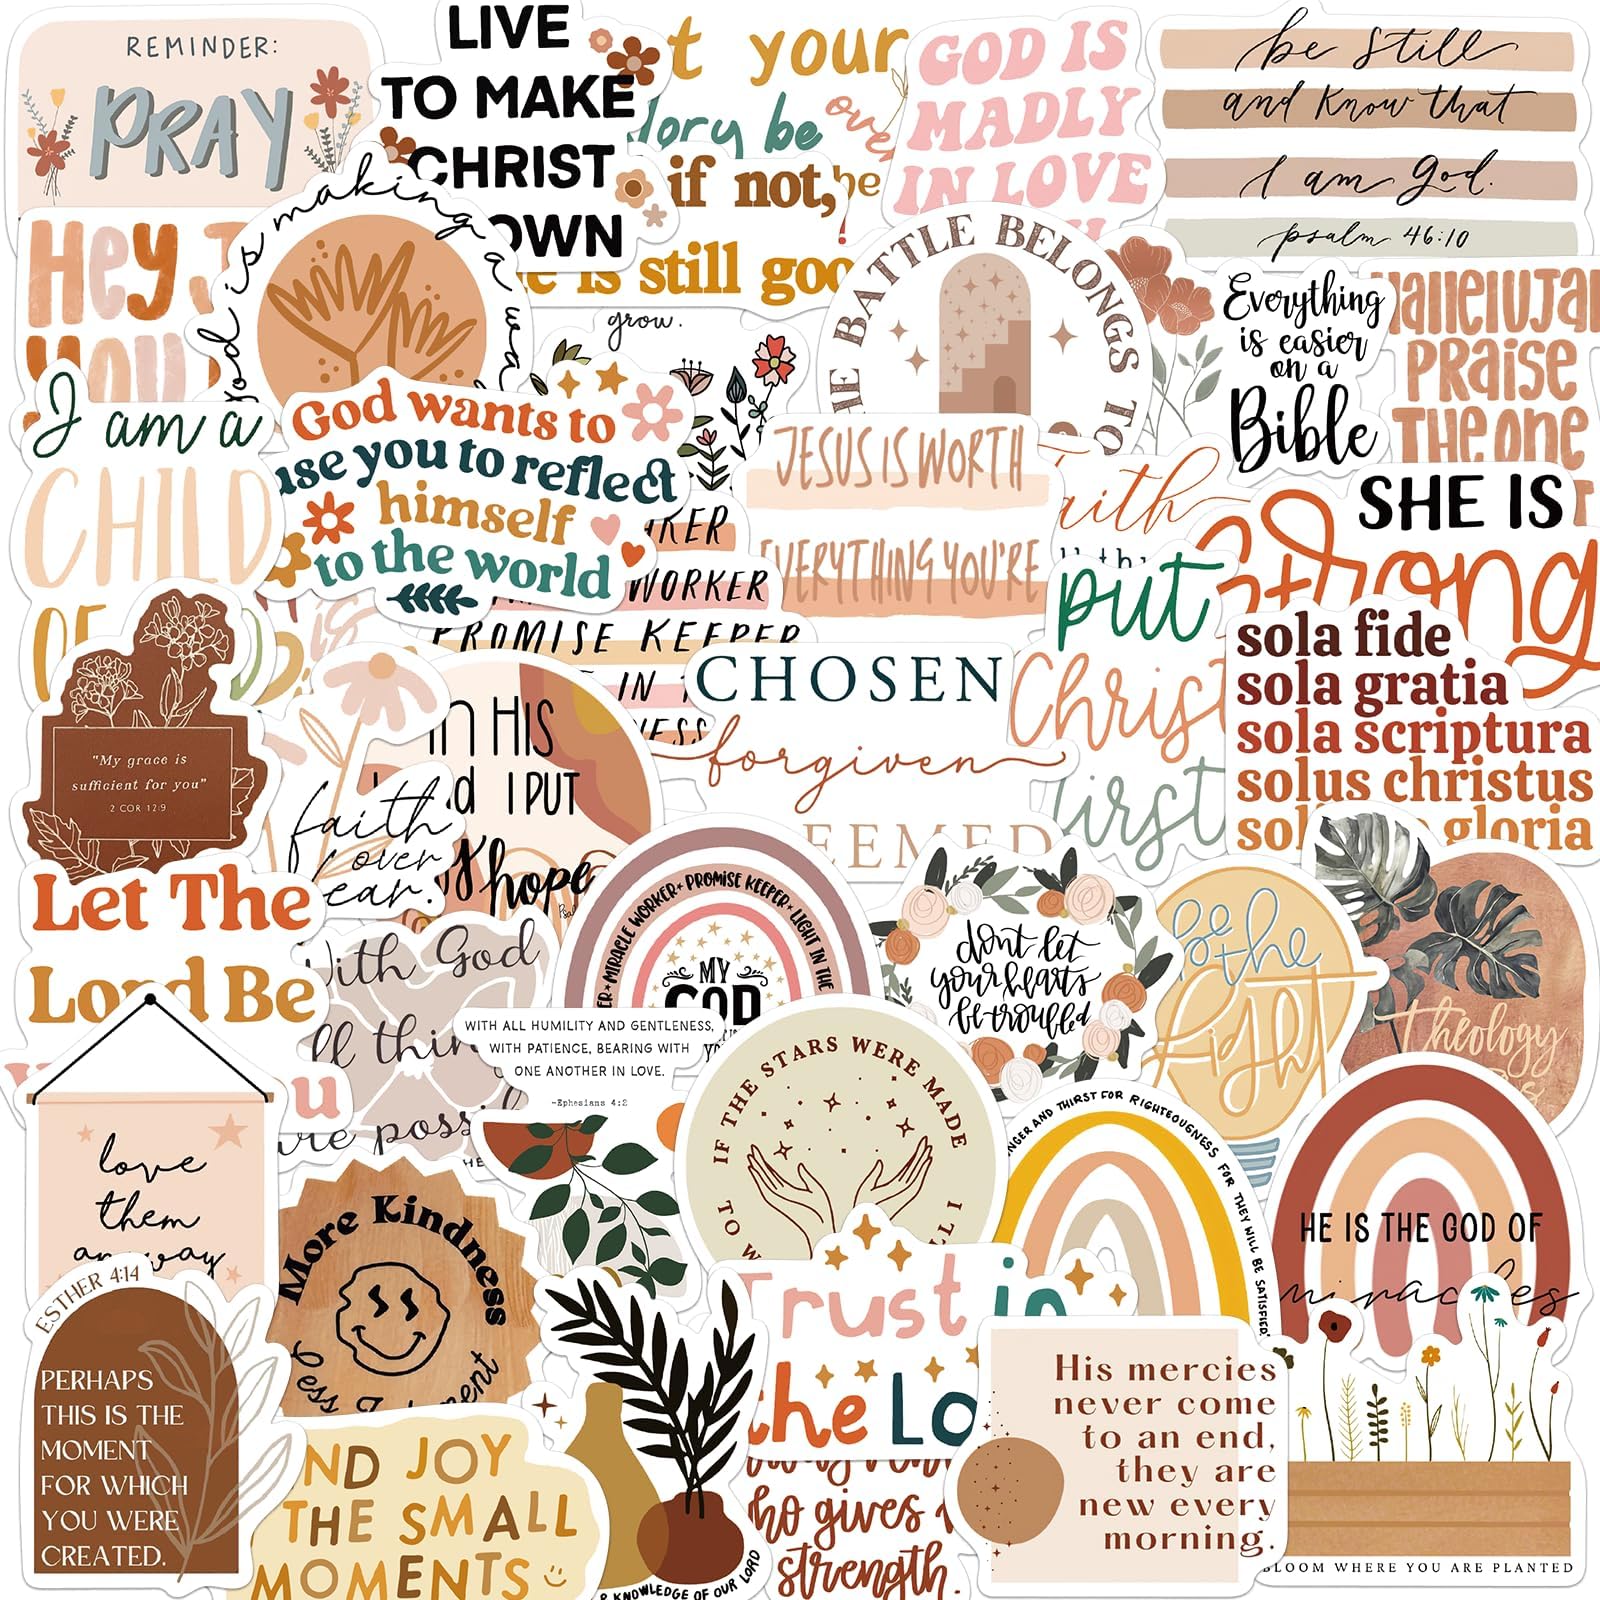 REMINDER:
PRAY
LIVE
TO MAKE
CHRIST
OWN
your
be
if not,
is still
GOD IS
MADLY
IN LOVE
be still
and know that
I am God.
psalm 46:10
Hey,
God is making a
grow.
BATTLE BELONGS TO
Everything
is easier
on a
Bible
PRAISE
THE one
I am a
CHILD
OF
God wants to
use you to reflect
himself
to the world
WORKER
PROMISE KEEPER
IN
JESUS IS WORTH
EVERYTHING YOU'RE
faith
put
Christ
first
SHE IS
strong
sola fide
sola gratia
sola scriptura
solus christus
gloria
"My grace is
sufficient for you"
2 COR 12:9
faith
over
fear.
IN HIS
I PUT
hope
CHOSEN
forgiven
Let The
Lord Be
With God
all
are
MIRACLE WORKER • PROMISE KEEPER • LIGHT IN THE
MY
GOD
don't let
your hearts
be troubled
be the
light
theology
WITH ALL HUMILITY AND GENTLENESS,
WITH PATIENCE, BEARING WITH
ONE ANOTHER IN LOVE.
-Ephesians 4:2
IF THE STARS WERE MADE
TO
AND THIRST FOR RIGHTEOUSNESS FOR THEY WILL BE SATISFIED
HE IS THE GOD OF
miracles
love
them
anyway
More Kindness
Less
ESTHER 4:14
PERHAPS
THIS IS THE
MOMENT
FOR WHICH
YOU WERE
CREATED.
JOY
THE SMALL
MOMENTS
KNOWLEDGE OF OUR LORD
Trust in
the
gives
strength.
His mercies
never come
to an end,
they are
new every
morning.
BLOOM WHERE YOU ARE PLANTED